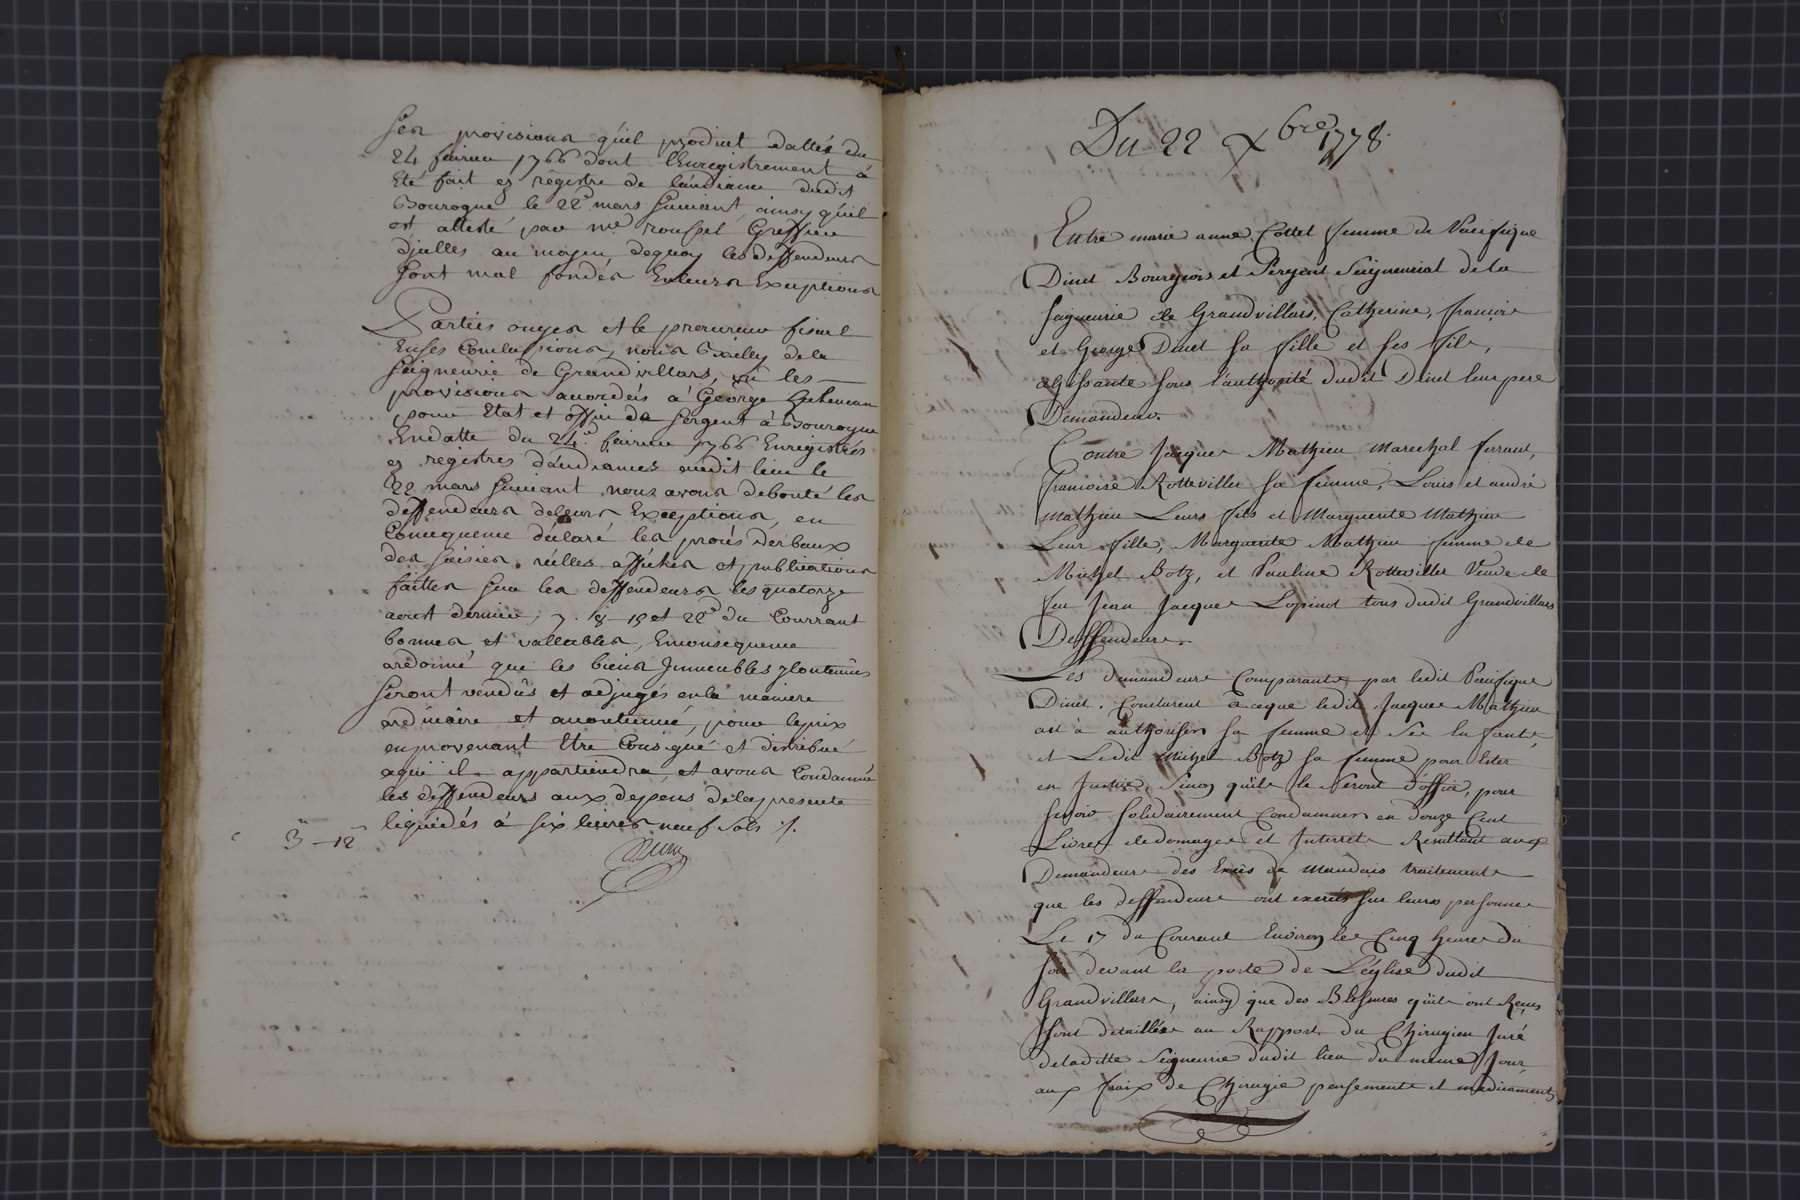 ses provisions qu'il produit dattés du
24 fevrier 1766 dont l'Enregistrement à
Eté fait es régistre de l'audiance dudit
Bourogne le 22e mars suivant, ainsy qu'il
est attesté par me rousset Greffier
d'jcelles au moyen dequoy les deffendeurs
sont mal fondés Enleurs Exceptions
Parties ouyes et le procureur fiscal
Enses Conclusions, nous Bailly de la
seigneurie de Grandvillars, vû les
provisions accordées à George
pour Etat et office de sergent à Bourogne
Endatte du 24e fevrier 1766 Enregistrés
es registres d'audiances dudit lieu le
22 mars suivant, nous avons debouté les
deffendeurs deleurs Exceptions, en
Consequence déclaré les procés verbaux
des saisies réelles affiches et publications
faittes sur les deffendeurs les quatorze
aoust dernier, 7. 8 19 et 22e du Courrant
bonnes, et vallables, Enconsequence
ordonné que les biens Jmmeubles y contenus
seront vendûs et adjugés enla maniere
ordinaire et accoutumé, pour leprix
enprovenant Etre Consigné et distribué
aqui il appartiendra, et avons Condamné
les deffendeurs aux depens delapresente
liquidés à six livres neuf sols ./.
3 - 12
Du 22 Xbre 1778.
Entre marie anne Cottet femme de Pacifique
Dinet Bourgeois et Sergent Seigneurial dela
seigneurie de Grandvillars, Catherine, françois
et George Dinet sa fille et ses fils,
agissante sous l'authorité dudit Dinet leur pere
Demandeurs.
Contre Jacques Mathieu Marechal ferrant,
françoise Rotteviller sa femme, Louis et andré
Mathieu Leurs fils et Marguerite Mathieu
Leur fille, Marguerite Mathieu femme de
Michel Botz, et Pauline Rotteviller Veuve de
feu Jean Jacques Lopinot tous dudit Grandvillars
Deffendeurs.
Les demandeurs Comparants par ledit Pacifique
Dinet. Conclurent aceque ledit Jacques Mathieu
ait à authoriser sa femme et Ses Enfants,
et Ledit Michel Botz sa femme pour Ester
en Justice, Sinon qu'ils le Seront d'office, pour
se voir solidairement Condamner en douze Cent
Livres dedomages et Interrets Resultant aux
Demandeurs des Excès de Mauvais traitements
que les deffendeurs ont exercés sur leurs personnes
Le 17 du Courant Environ les Cinq heures du
soir devant la porte de L'église dudit
Grandvillars, ainsy que des Blessures qu'ils ont Reçus
sont detaillées au Rapport du Chirugien Juré
deladitte Seigneurie dudit lieu du meme Jour
aux fraix de Chirugie pensements et medicaments